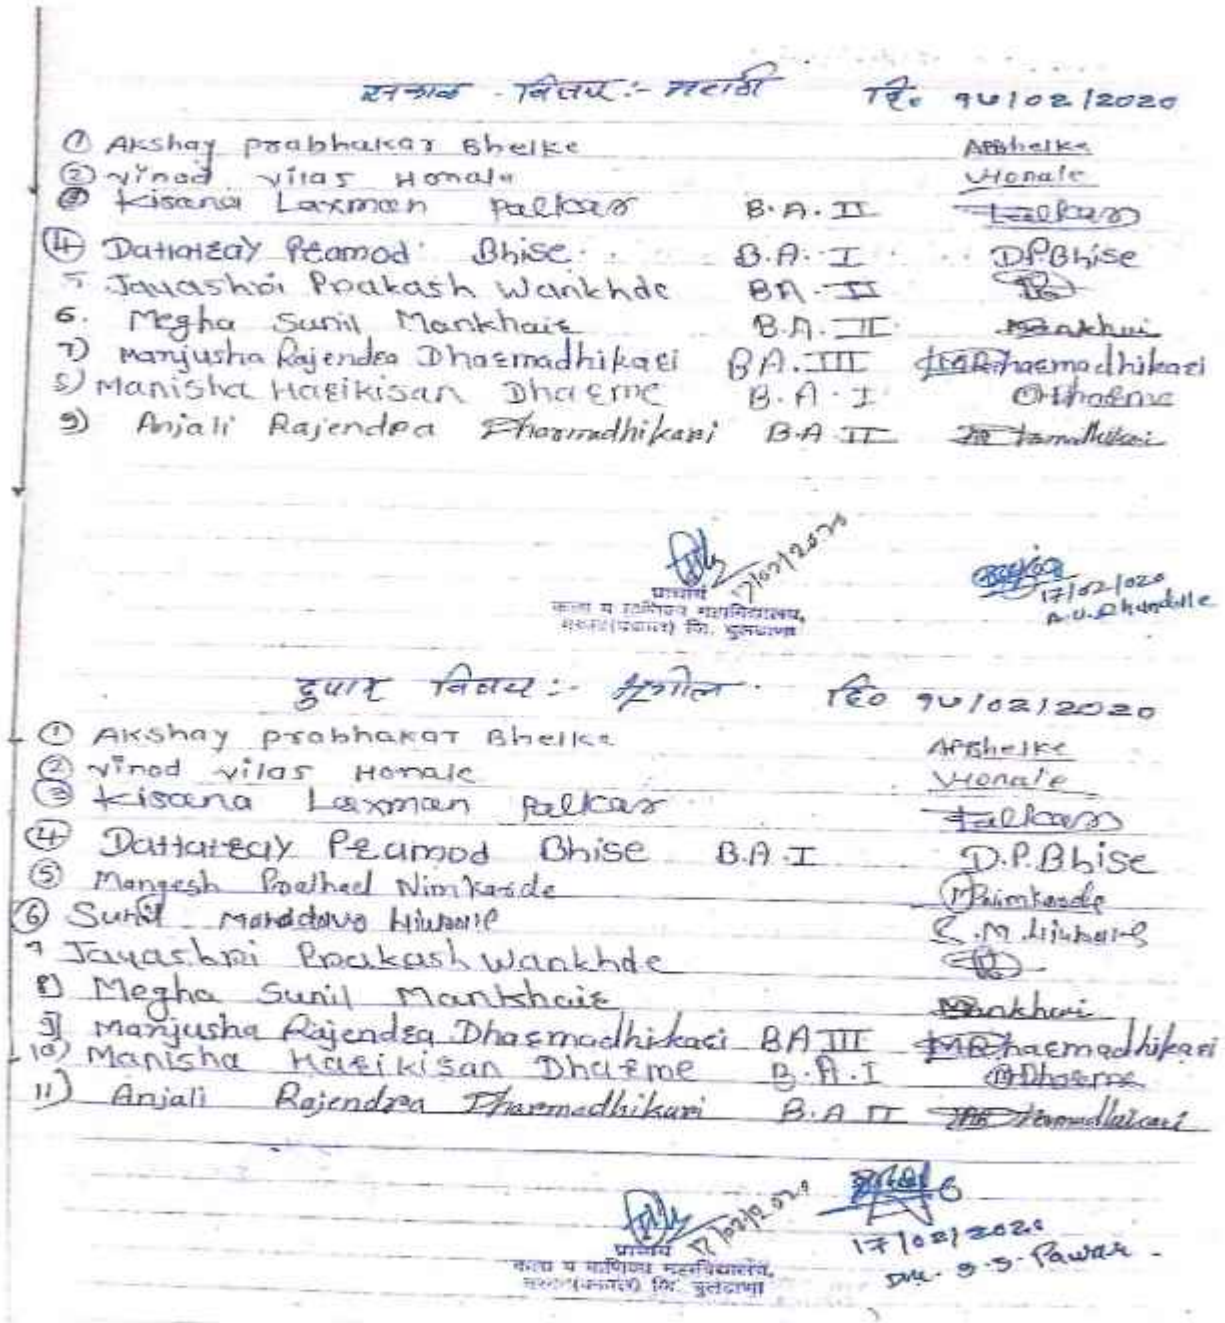 सकाळ - विषय :- मराठी दि. १७/०२/2020
① Akshay Prabhakar Bhelke APBhelke
② Vinod Vilas Honale VHonale
③ Kisana Laxman Palkar B.A. II Palkar
④ Dattatray Pramod Bhise B.A. I D.P.Bhise
5. Jayashri Prakash Wankhde BA. II
6. Megha Sunil Mankhair B.A. II Mankhair
7) Manjusha Rajendra Dharmadhikari BA. III MRDharmadhikari
8) Manisha Harikisan Dharme B.A. I Dharme
9) Anjali Rajendra Dharmadhikari B.A II Dharmadhikari
17/02/2020
प्राचार्य
कला व वाणिज्य महाविद्यालय,
जि. बुलढाणा
17/02/020
दुपार विषय :- भूगोल दि० १७/०२/2020
① Akshay Prabhakar Bhelke APBhelke
② Vinod Vilas Honale VHonale
③ Kisana Laxman Palkar Palkar
④ Dattatray Pramod Bhise B.A. I D.P.Bhise
⑤ Mangesh Nimkarde Nimkarde
⑥ Sunil
7 Jayashri Prakash Wankhde
8) Megha Sunil Mankhair Mankhair
9) Manjusha Rajendra Dharmadhikari BA III MRDharmadhikari
10) Manisha Harikisan Dharme B.A.I MDharme
11) Anjali Rajendra Dharmadhikari B.A II Dharmadhikari
17/02/2020
प्राचार्य
कला व वाणिज्य महाविद्यालय,
जि. बुलढाणा
17/02/2020
S. S. Pawar